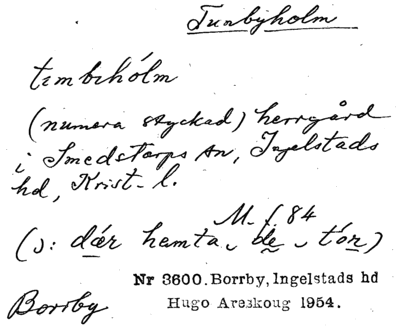 Tunbyholm
tımbıhólm
(numera styckad) herrgård
i Smedstorps sn, Ingelstads
hd, Krist. l.
M. f. 84
(ɔ: dǽr hemta de tór)
Nr 3600. Borrby, Ingelstads hd
Borrby
Hugo Areskoug 1954.